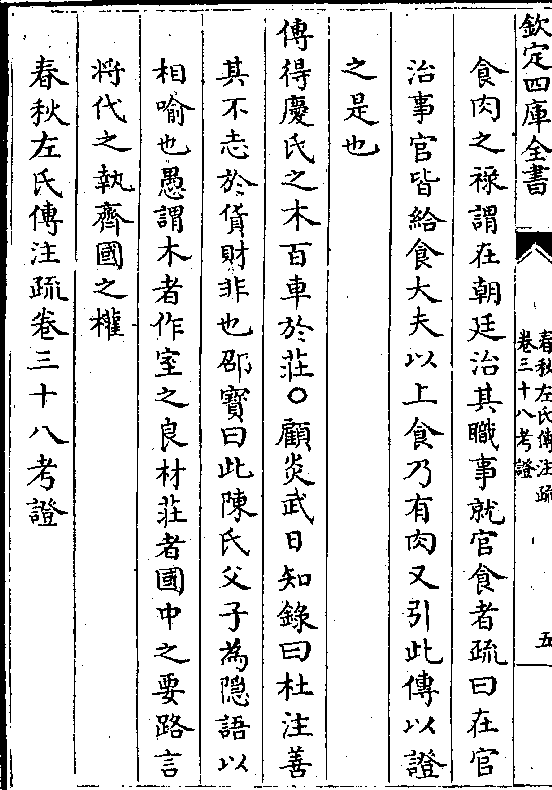 欽定四庫全書
春秋左氏傳注疏
卷三十八考證
五
食肉之祿謂在朝廷治其職事就官食者疏曰在官
治事官皆給食大夫以上食乃有肉又引此傳以證
之是也
傳得慶氏之木百車於莊○顧炎武日知錄曰杜注善
其不志於貨財非也邵寶曰此陳氏父子為隱語以
相喻也愚謂木者作室之良材莊者國中之要路言
將代之執齊國之權
春秋左氏傳注疏卷三十八考證